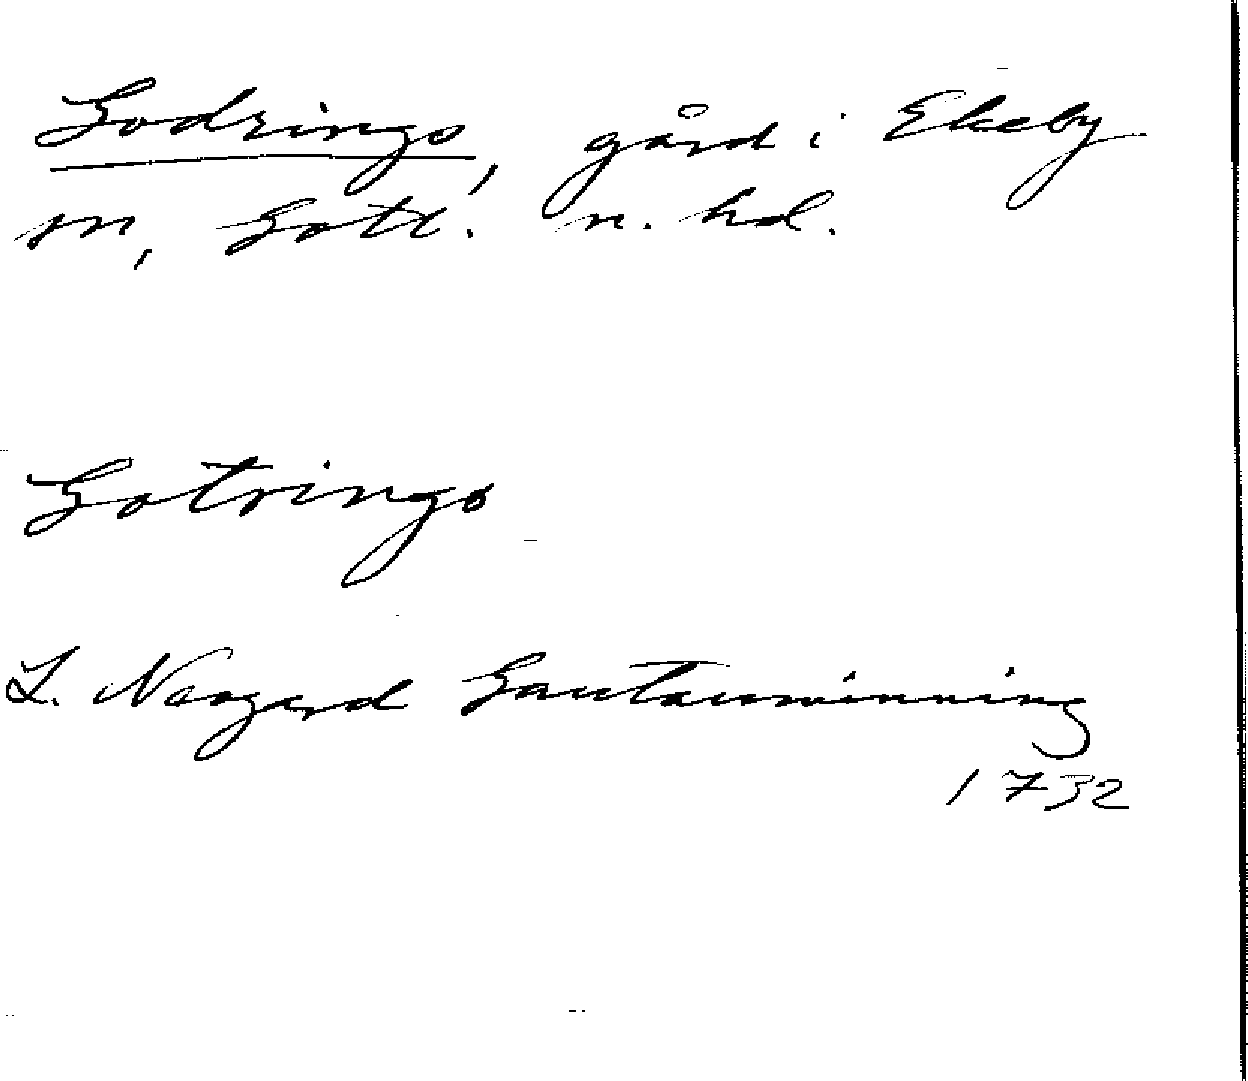 Godrings, gård i Ekeby
sn, Gotl. n. hd.
Gotrings
L. Neogard Gautauminning
1732